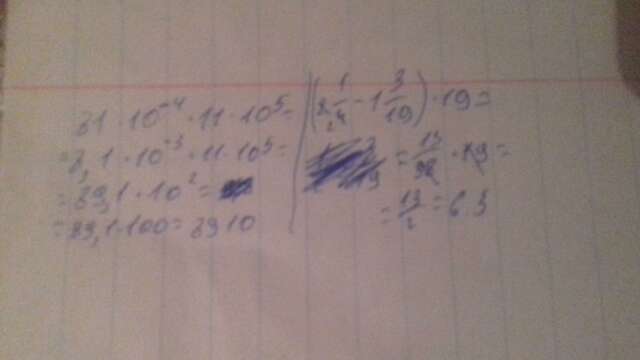 81 · 10⁻⁴ · 11 · 10⁵ =
= 8,1 · 10⁻³ · 11 · 10⁵ =
= 89,1 · 10² =
= 89,1 · 100 = 8910
- 1 3/19) · 19 =
= 13/38 · 19 =
= 13/2 = 6.5